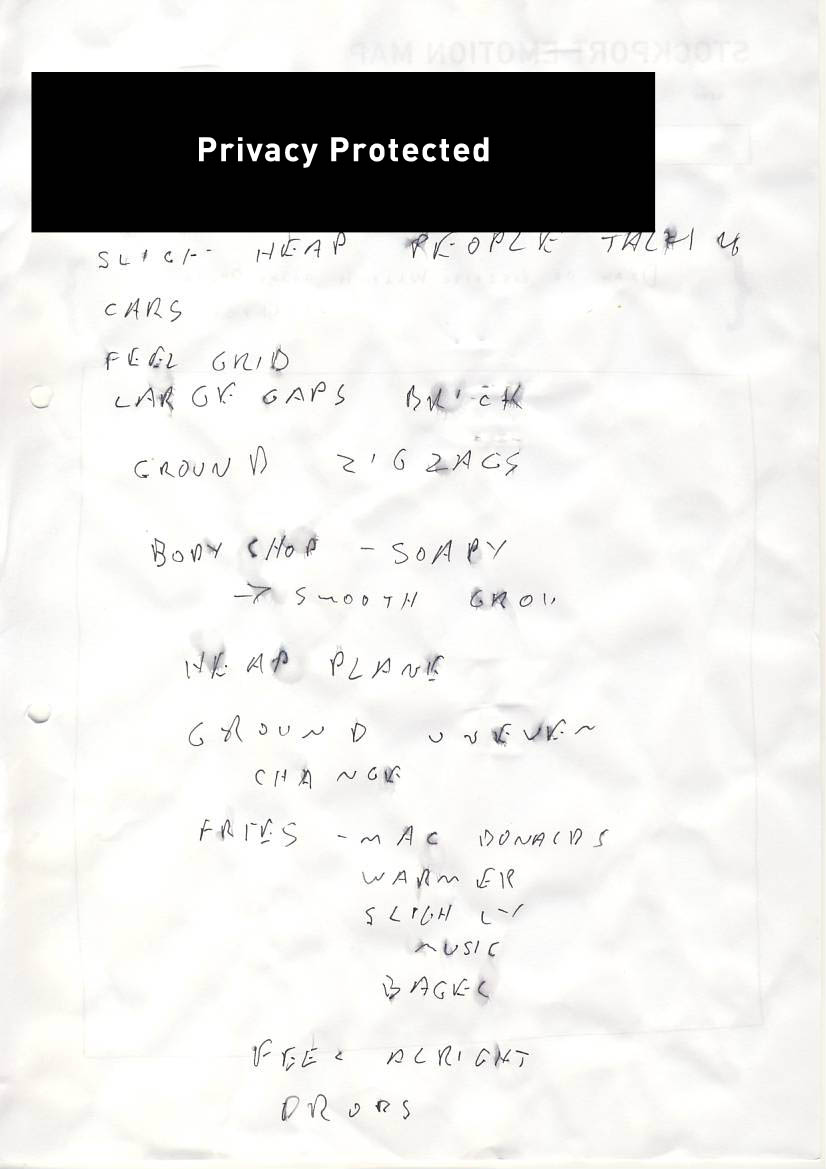 Privacy Protected
HEAP PEOPLE TALKING
CARS
FEEL GRID
LARGE GAPS BRICK
GROUND ZIGZAGS
BODY SHOP - SOAPY
→ SMOOTH GROU
HEAP PLANE
GROUND UNEVEN
CHANGE
FRIES - MAC DONALDS
WARMER
SLIGHLY
MUSIC
BAGEL
FEEL ALRIGHT
STOCKPORT EMOTION MAP